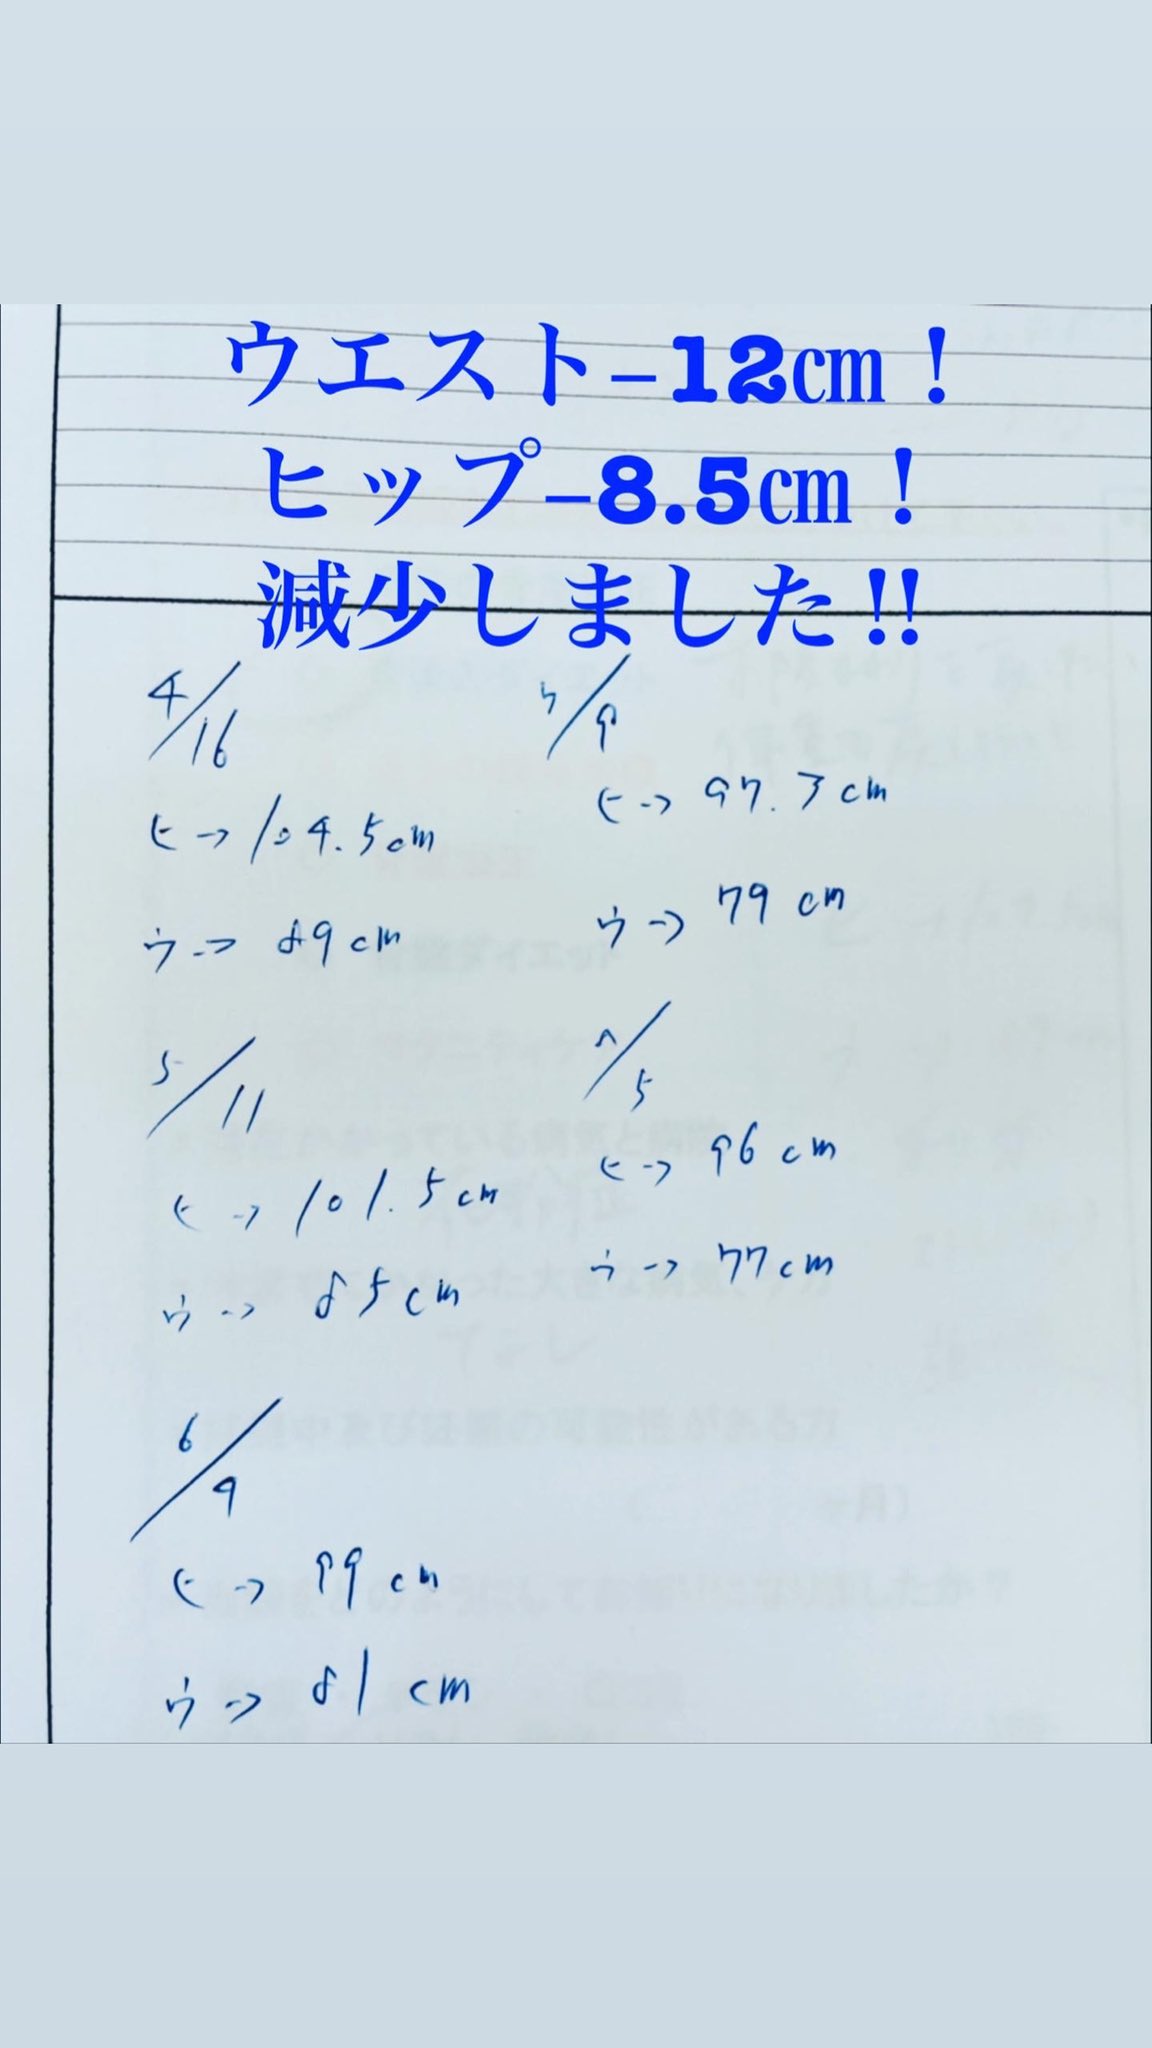 ウエスト−12㎝！
ヒップ−8.5㎝！
減少しました!!
4/16
ヒ→104.5cm
ウ→89cm
5/11
ヒ→101.5cm
ウ→85cm
6/9
ヒ→99cm
ウ→81cm
7/9
ヒ→97.3cm
ウ→79cm
8/5
ヒ→96cm
ウ→77cm